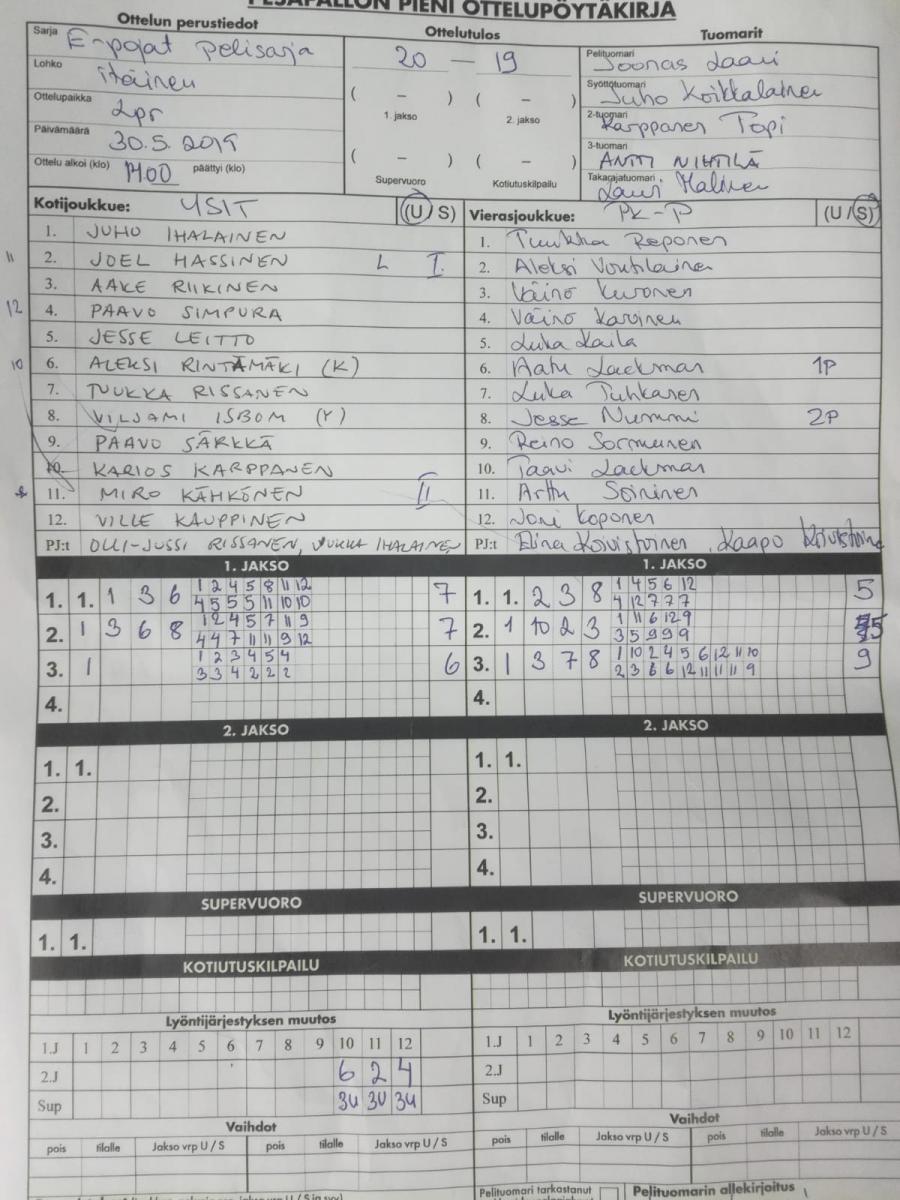 PESÄPALLON PIENI OTTELUPÖYTÄKIRJA
Ottelun perustiedot
Ottelutulos
Tuomarit
Sarja E-pojat pelisarja
20 — 19
Pelituomari Joonas Laari
Lohko itäinen
( – ) ( – )
Syöttötuomari Juho Koikkalainen
1. jakso 2. jakso
Ottelupaikka 2pr
2-tuomari Karppanen Topi
Päivämäärä 30.5.2019
( – ) ( – )
3-tuomari ANTTI NIHTILÄ
Ottelu alkoi (klo) 1400 päättyi (klo)
Supervuoro Kotiutuskilpailu
Takarajatuomari Lauri Malinen
Kotijoukkue: YSIT (U / S)
Vierasjoukkue: PK-P (U / S)
1. JUHO IHALAINEN
1. Tuukka Reponen
11 2. JOEL HASSINEN L I
2. Aleksi Voutilainen
3. AAKE RIIKINEN
3. Väinö Kuronen
12 4. PAAVO SIMPURA
4. Väinö Karvinen
5. JESSE LEITTO
5. Luka Kaila
10 6. ALEKSI RINTAMÄKI (K)
6. Aatu Lackman 1P
7. TUUKKA RISSANEN
7. Luka Tuhkanen
8. VILJAMI ISBOM (Y)
8. Jesse Nummi 2P
9. PAAVO SÄRKKÄ
9. Reino Sormunen
10. KARIOS KARPPANEN
10. Taavi Lackman
11. MIRO KÄHKÖNEN II
11. Arttu Soininen
12. VILLE KAUPPINEN
12. Joni Koponen
PJ:t OLLI-JUSSI RISSANEN, JUKKA IHALAINEN
PJ:t Elina Koivistoinen, Kaapo Koivistoinen
1. JAKSO
1. JAKSO
1 2 4 5 8 11 12
1. 1. 1 3 6 7
4 5 5 5 11 10 10
1 4 5 6 12
1. 1. 2 3 8 5
4 12 7 7 7
1 2 4 5 7 11 9
2. 1 3 6 8 7
4 4 7 11 11 9 12
1 11 6 12 9
2. 1 10 2 3 5
3 5 9 9 9
1 2 3 4 5 4
3. 1 6
3 3 4 2 2 2
1 10 2 4 5 6 12 11 10
3. 1 3 7 8 9
2 3 6 6 12 11 11 11 9
4.
4.
2. JAKSO
2. JAKSO
1. 1.
1. 1.
2.
2.
3.
3.
4.
4.
SUPERVUORO
SUPERVUORO
1. 1.
1. 1.
KOTIUTUSKILPAILU
KOTIUTUSKILPAILU
Lyöntijärjestyksen muutos
Lyöntijärjestyksen muutos
1.J 1 2 3 4 5 6 7 8 9 10 11 12
1.J 1 2 3 4 5 6 7 8 9 10 11 12
2.J 6 2 4
2.J
Sup 3U 3U 3U
Sup
Vaihdot
Vaihdot
pois tilalle Jakso vrp U / S pois tilalle Jakso vrp U / S
pois tilalle Jakso vrp U / S pois tilalle Jakso vrp U / S
Pelituomari tarkastanut
Pelituomarin allekirjoitus